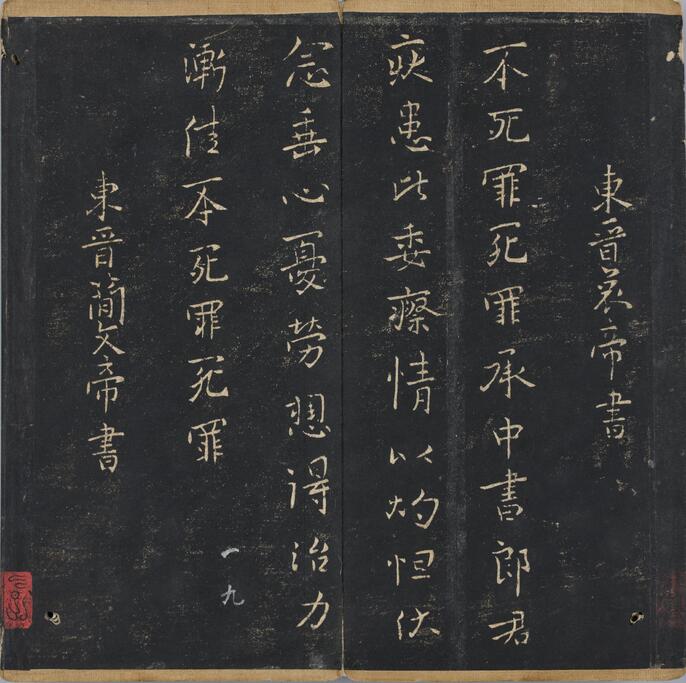 東晉哀帝書
不死罪死罪承中書郎君
疾患此委瘵情以灼怛伏
念垂心憂勞想得治力
漸佳不死罪死罪
一九
東晉簡文帝書